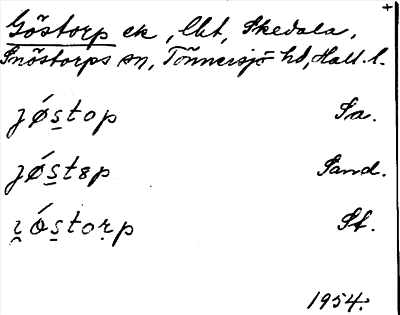 +
Göstorp ek, lht, Skedala,
Snöstorps sn, Tönnersjö hd, Hall. l.
jǿs̠top Sa.
jǿs̠tɞp Sand.
ɿ̯ǿs̠toṛp St.
1954.